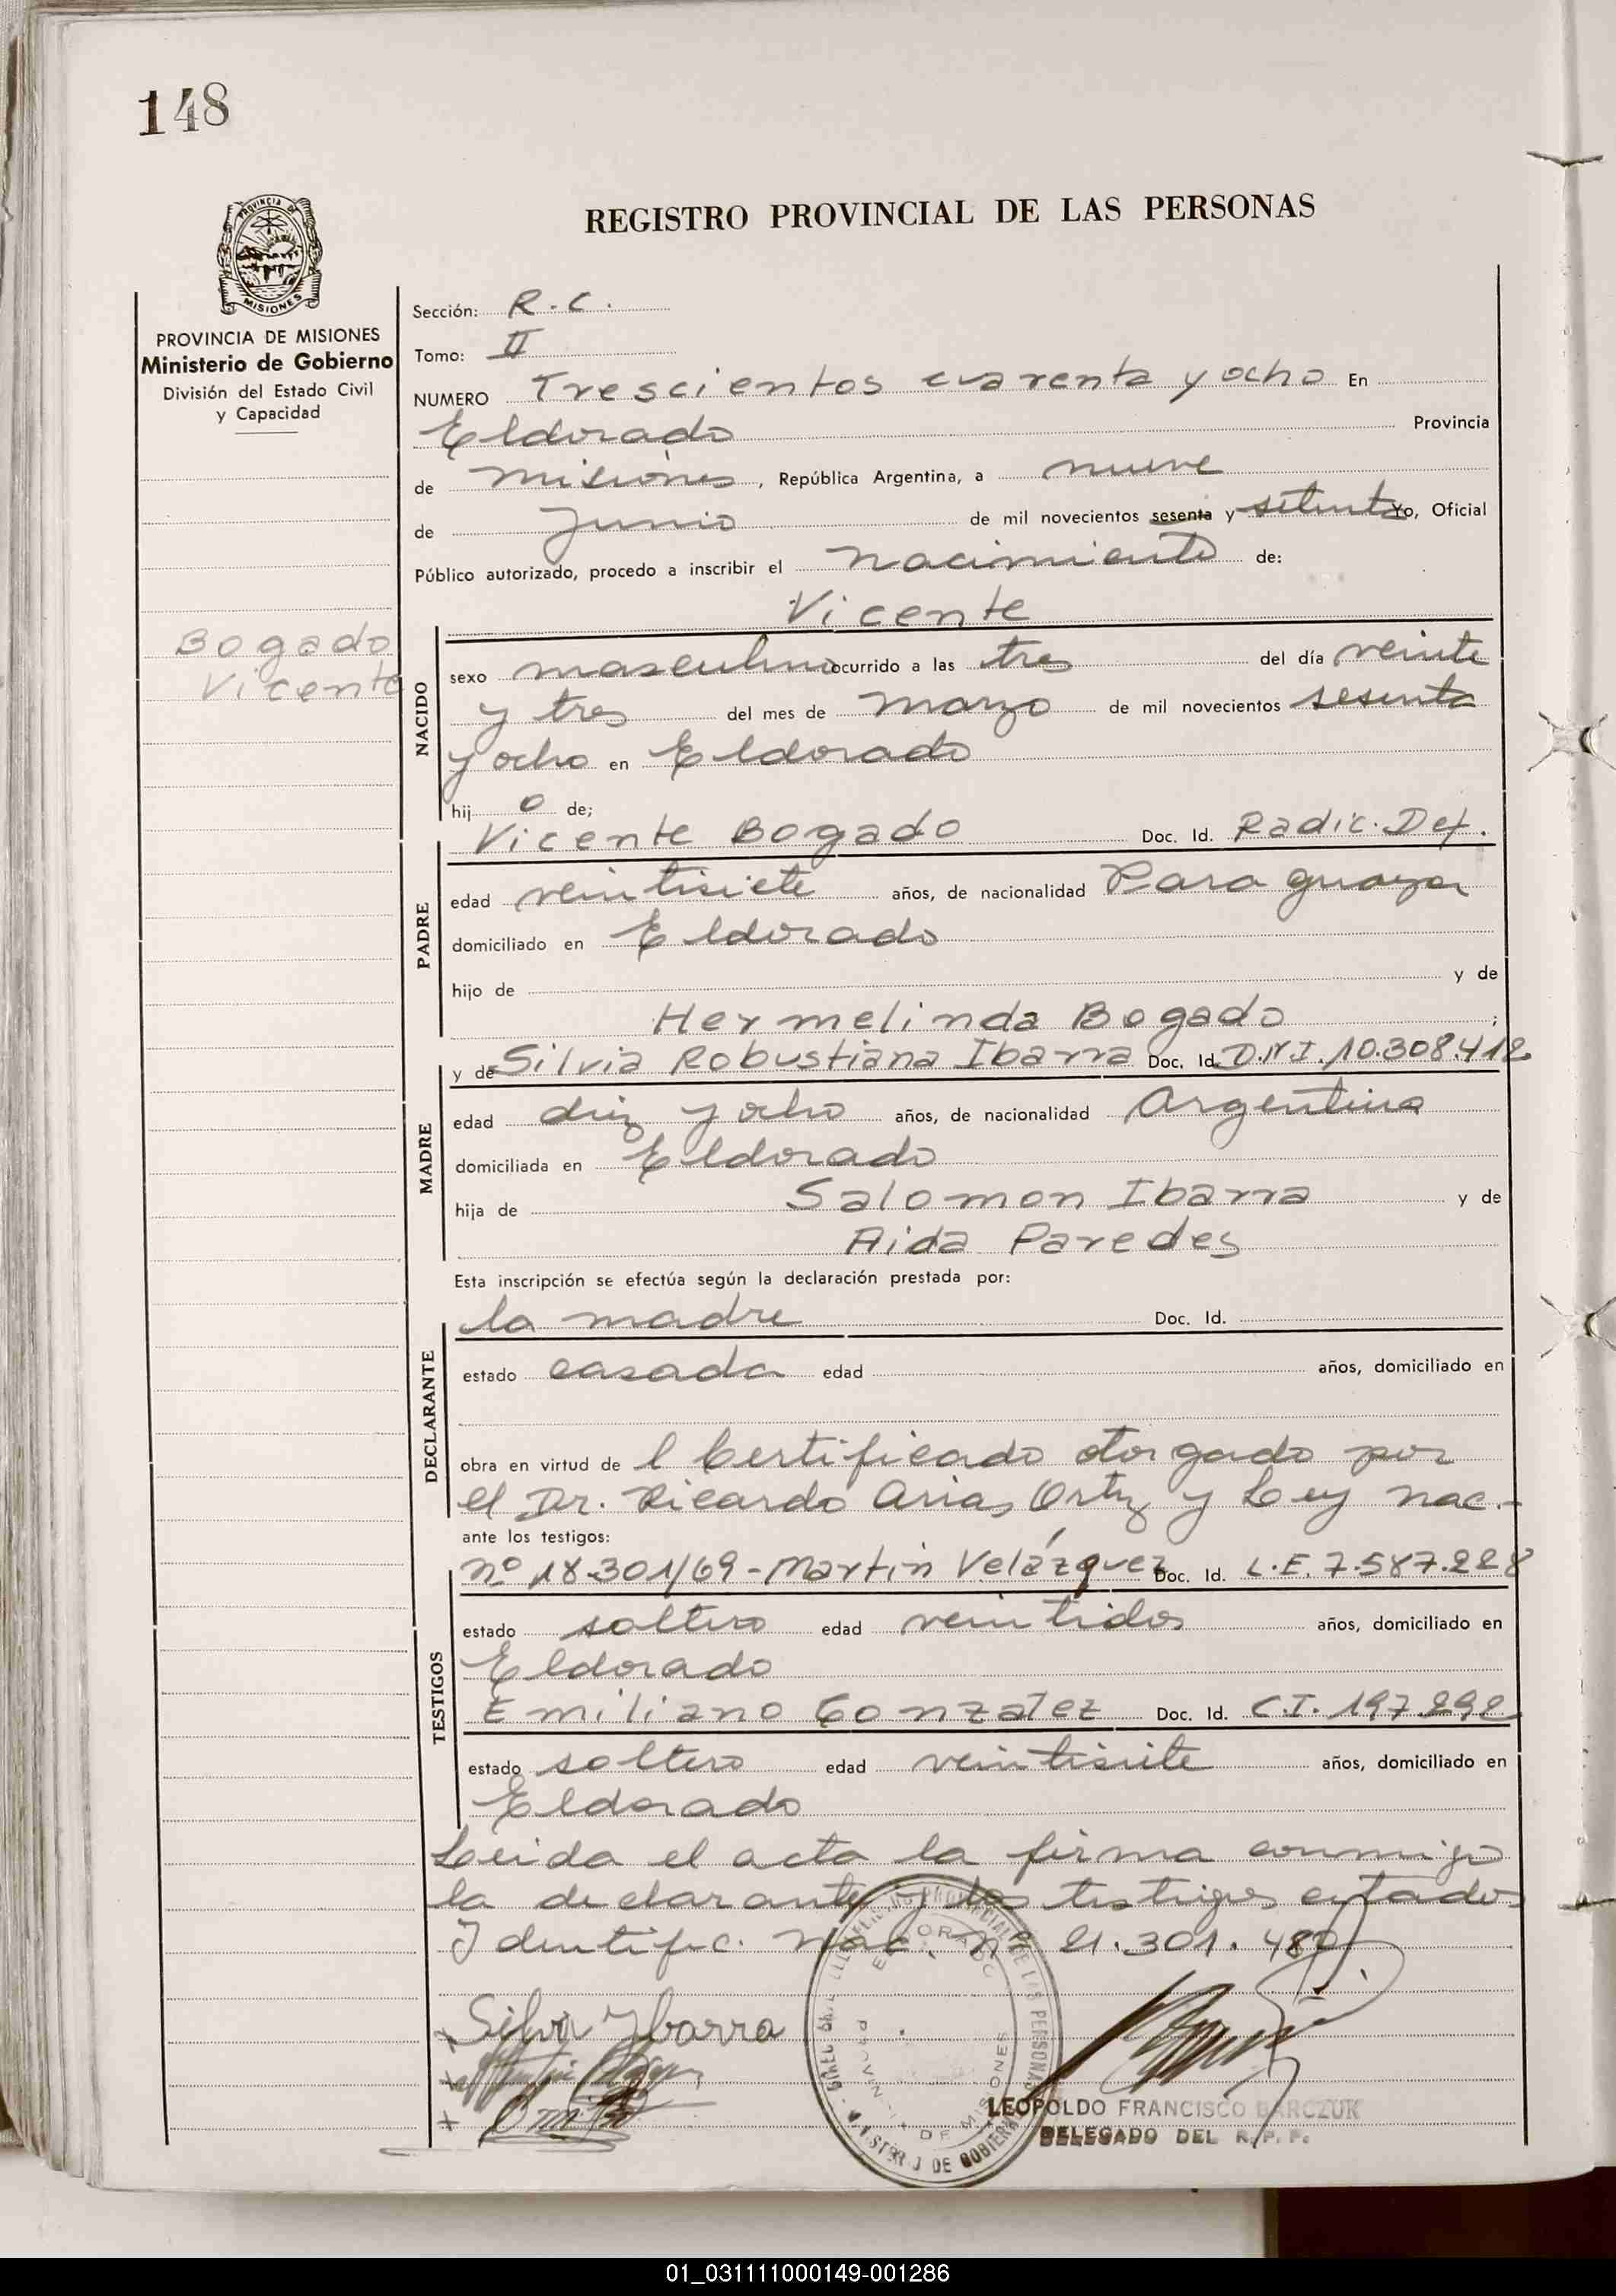 148
PROVINCIA DE
MISIONES
REGISTRO PROVINCIAL DE LAS PERSONAS
PROVINCIA DE MISIONES
Ministerio de Gobierno
División del Estado Civil
y Capacidad
Bogado
Vicente
Sección: R.C.
Tomo: II
NUMERO Trescientos cuarenta y ocho En
Eldorado Provincia
de Misiones, República Argentina, a nueve
de Junio de mil novecientos sesenta y setenta Yo, Oficial
Público autorizado, procedo a inscribir el nacimiento de:
Vicente
NACIDO
sexo masculino ocurrido a las tres del día veinte
y tres del mes de marzo de mil novecientos sesenta
y ocho en Eldorado
hij o de;
Vicente Bogado Doc. Id. Radic. Def.
PADRE
edad veintisiete años, de nacionalidad Paraguaya
domiciliado en Eldorado
hijo de y de
Hermelinda Bogado ;
y de Silvia Robustiana Ibarra Doc. Id. D.N.I. 10.308.412
MADRE
edad diez y ocho años, de nacionalidad Argentina
domiciliada en Eldorado
hija de Salomon Ibarra y de
Aida Paredes
Esta inscripción se efectúa según la declaración prestada por:
la madre Doc. Id.
DECLARANTE
estado casada edad años, domiciliado en
obra en virtud de l Certificado otorgado por
el Dr. Ricardo Arias Ortiz y Ley Nac.-
ante los testigos:
nº 18.301/69 - Martin Velázquez Doc. Id. L.E. 7.587.228
TESTIGOS
estado soltero edad veintidos años, domiciliado en
Eldorado
Emiliano Gonzalez Doc. Id. C.I. 197.292
estado soltero edad veintisiete años, domiciliado en
Eldorado
Leida el acta la firma conmigo
la declarante y los testigos citados
Identific. Nac. nº 21.301.480
Silva Ibarra
ELDORADO
PROVINCIA DE MISIONES
MINISTERIO DE GOBIERNO
LEOPOLDO FRANCISCO BARCZUK
DELEGADO DEL R.P.P.
01_031111000149-001286